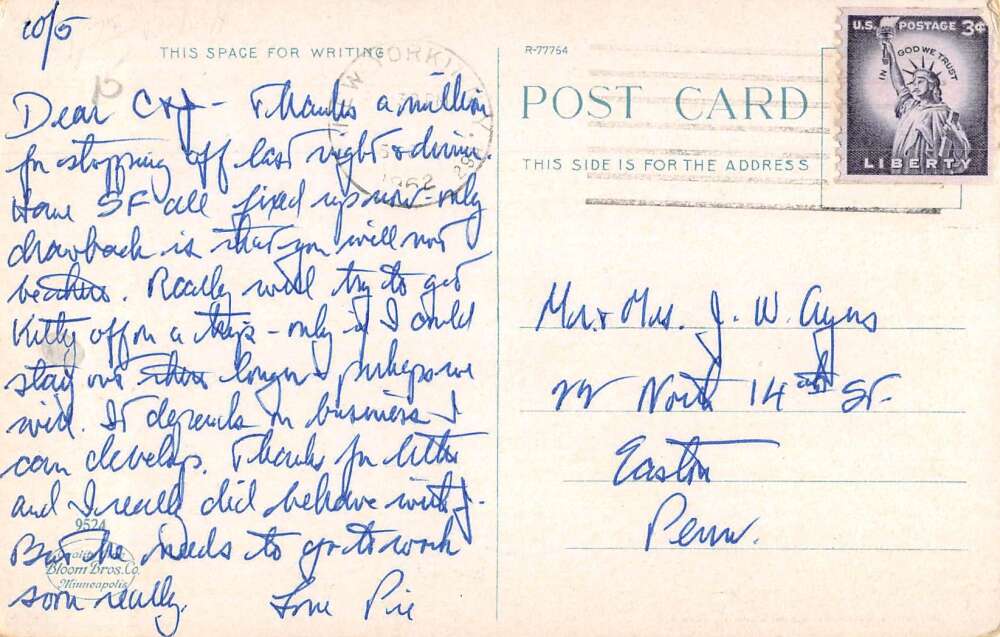 10/5
THIS SPACE FOR WRITING
Dear C+J - Thanks a million
for stopping off last night + dinner.
Have SF all fixed up now - only
drawback is that you will not
be there. Really will try to get
Kitty off on a trip - only if I could
stay out there longer + perhaps we
will. It depends on business I
can develop. Thanks for letter
and I really did behave with J.
But he needs to go to work
soon really. Love
9524
Quality
Bloom Bros. Co.
Minneapolis
R-77754
POST CARD
THIS SIDE IS FOR THE ADDRESS
1962
U.S. POSTAGE 3¢
IN GOD WE TRUST
LIBERTY
Mr. + Mrs. J. W. Ayers
North 14th St.
Easton
Penn.